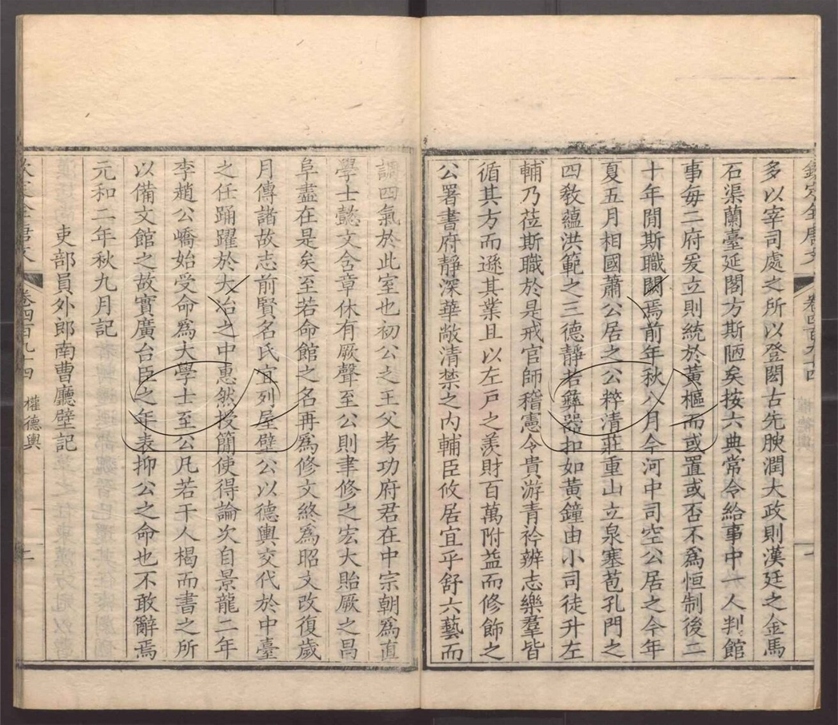 欽定全唐文 卷四百九十四
多以宰司處之所以登閎古先腴潤大政則漢廷之金馬
石渠蘭臺延閣方斯陋矣按六典常令給事中一人判館
事每二府爰立則統於黃樞而或置或否不爲恒制後二
十年閒斯職闕焉前年秋八月今河中司空公居之今年
夏五月相國蕭公居之公粹清莊重山立泉塞苞孔門之
四教蘊洪範之三德靜若彝器扣如黃鐘由小司徒升左
輔乃莅斯職於是戒官師稽憲令貴游青衿辨志樂羣皆
循其方而遜其業且以左戸之羨財百萬附益而修飾之
公署書府靜深華敞清禁之內輔臣攸居宜乎舒六藝而
調四氣於此室也初公之王父考功府君在中宗朝爲直
學士懿文含章休有厥聲至公則聿修之宏大貽厥之昌
阜盡在是矣至若命館之名再爲修文終爲昭文改復歲
月傳諸故志前賢名氏宜列屋壁公以德輿交代於中臺
之任踊躍於大冶之中惠然授簡使得論次自景龍二年
李趙公嶠始受命爲大學士至公凡若干人楬而書之所
以備文館之故實廣台臣之年表抑公之命也不敢辭焉
元和二年秋九月記
吏部員外郎南曹廳壁記
欽定全唐文 卷四百九十四 權德輿 二